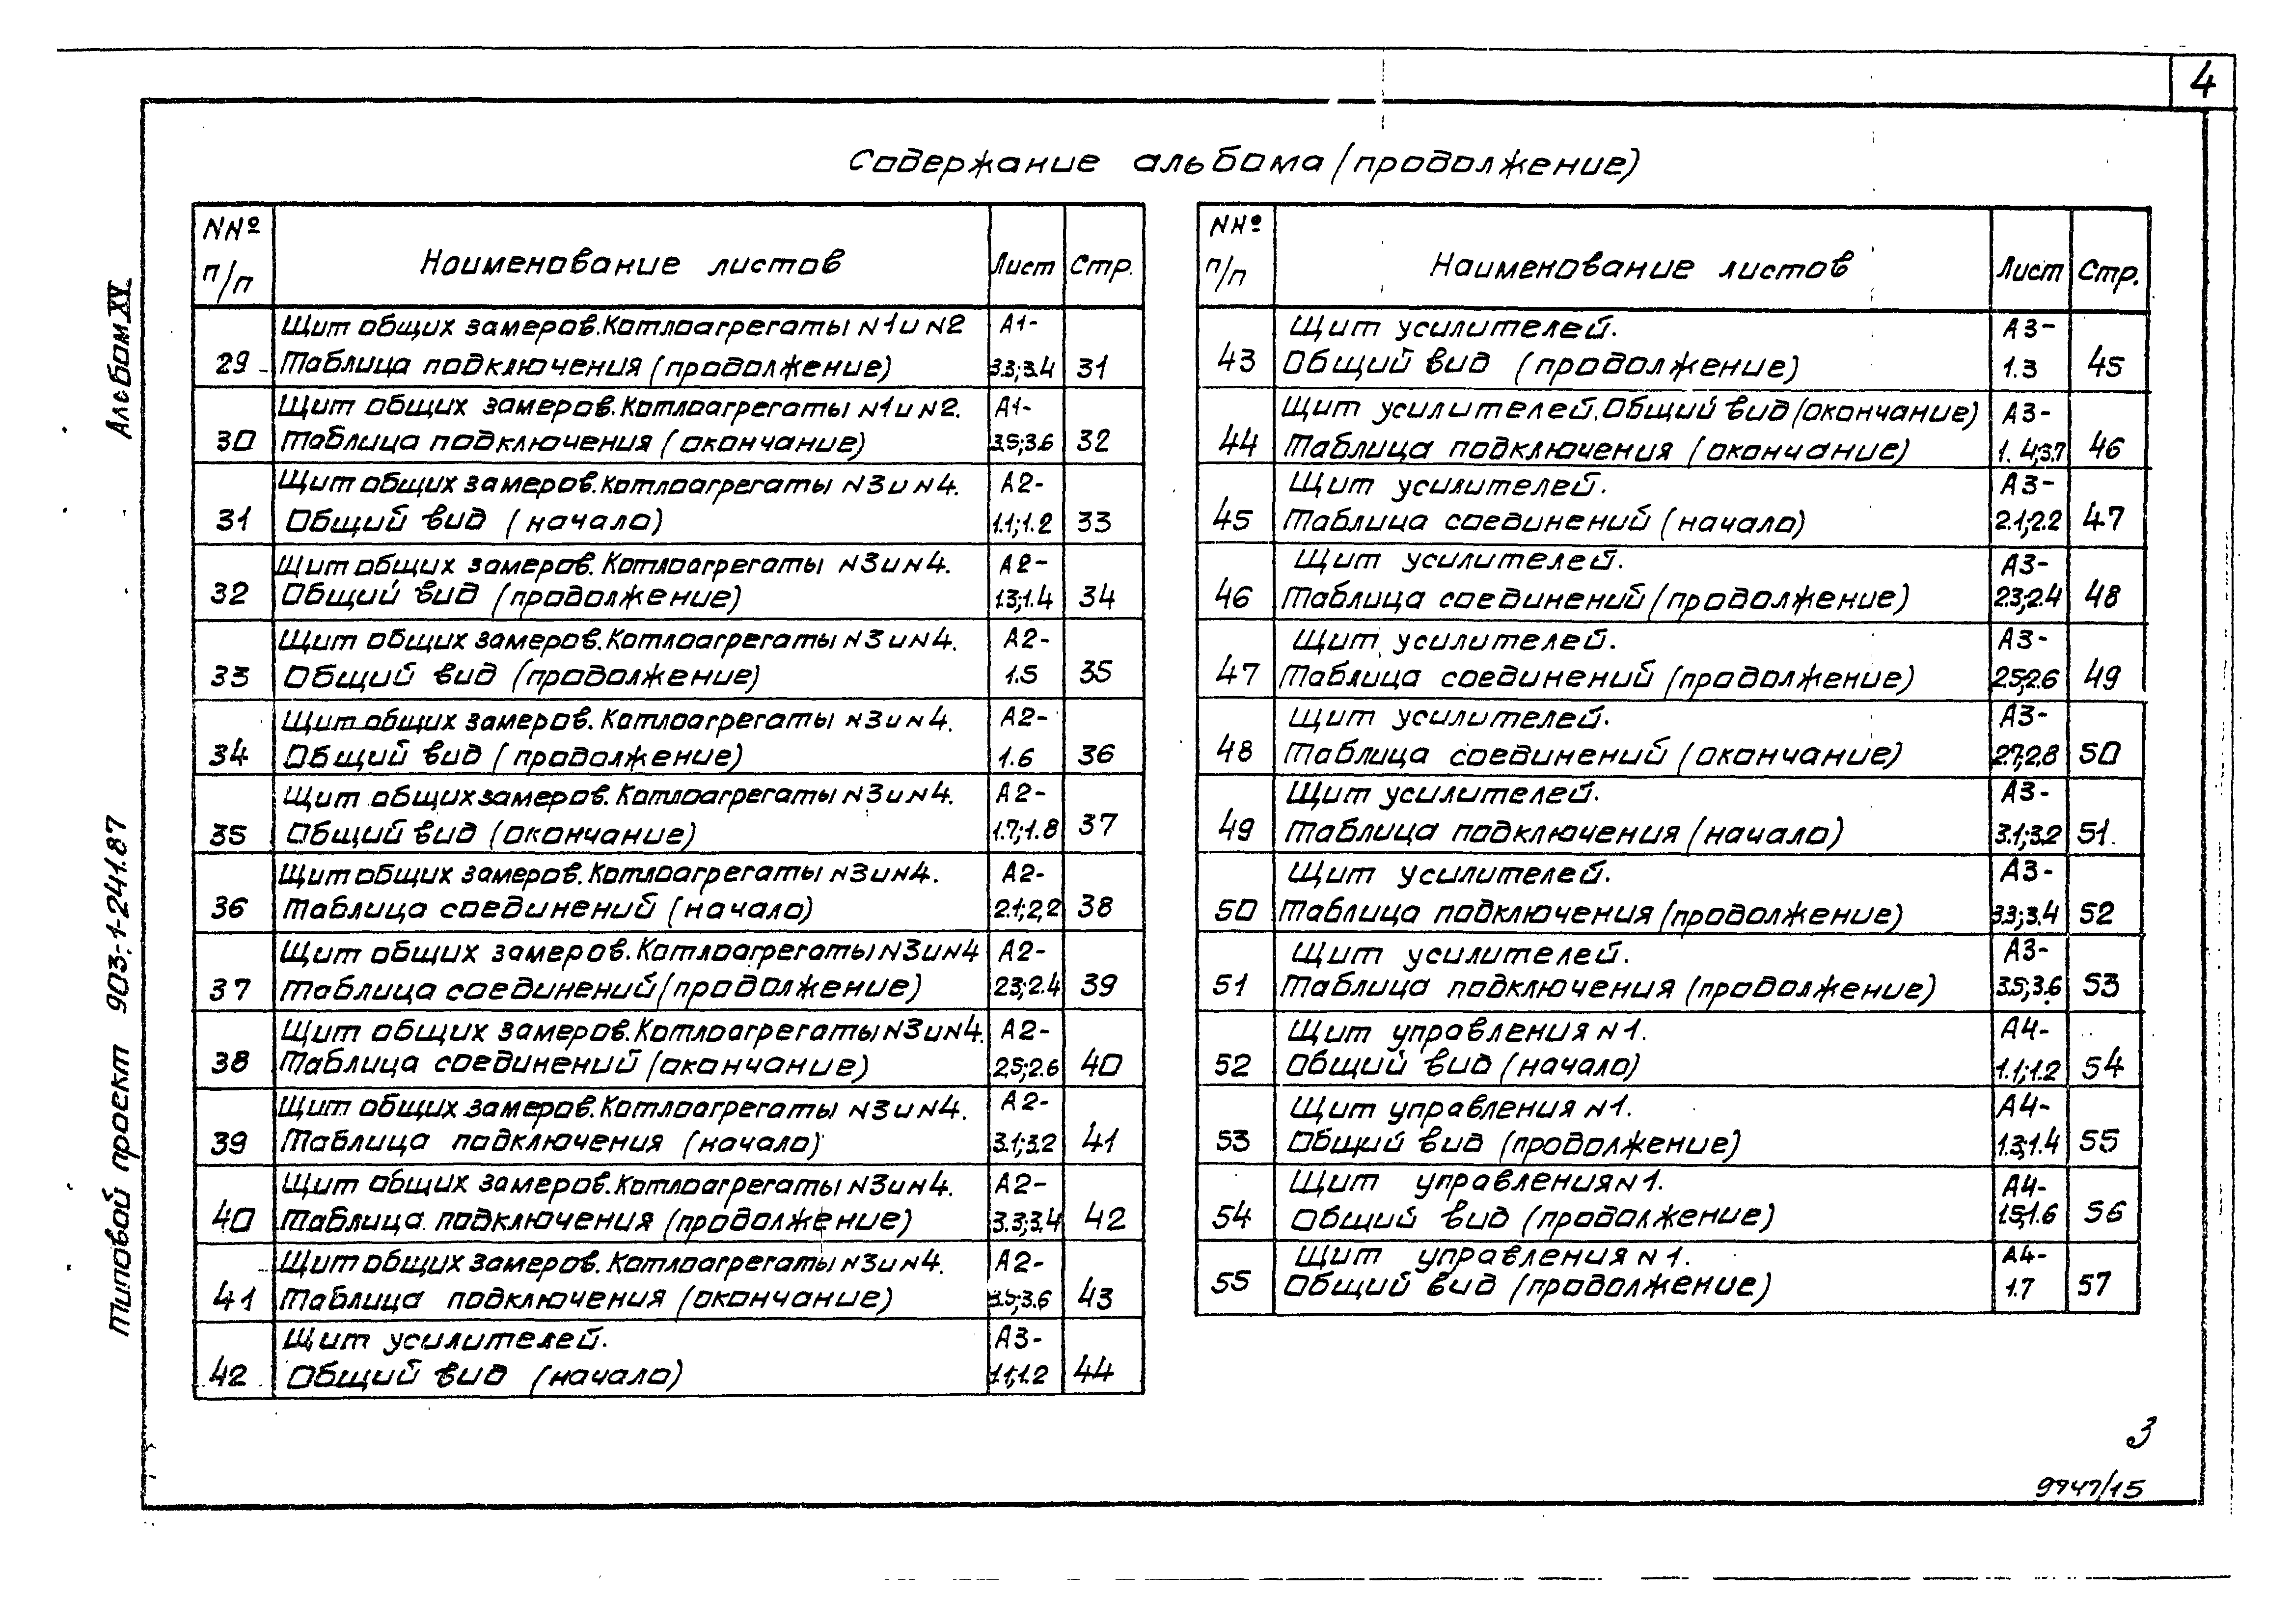 4
Содержание альбома (продолжение)
NNº п/п Наименование листов Лист Стр.
29 Щит общих замеров. Котлоагрегаты N1 и N2 А1-
Таблица подключения (продолжение) 3.3;3.4 31
30 Щит общих замеров. Котлоагрегаты N1 и N2. А1-
Таблица подключения (окончание) 3.5;3.6 32
31 Щит общих замеров. Котлоагрегаты N3 и N4. А2-
Общий вид (начало) 1.1;1.2 33
32 Щит общих замеров. Котлоагрегаты N3 и N4. А2-
Общий вид (продолжение) 1.3;1.4 34
33 Щит общих замеров. Котлоагрегаты N3 и N4. А2-
Общий вид (продолжение) 1.5 35
34 Щит общих замеров. Котлоагрегаты N3 и N4. А2-
Общий вид (продолжение) 1.6 36
35 Щит общих замеров. Котлоагрегаты N3 и N4. А2-
Общий вид (окончание) 1.7;1.8 37
36 Щит общих замеров. Котлоагрегаты N3 и N4. А2-
Таблица соединений (начало) 2.1;2,2 38
37 Щит общих замеров. Котлоагрегаты N3 и N4 А2-
Таблица соединений (продолжение) 2.3;2.4 39
38 Щит общих замеров. Котлоагрегаты N3 и N4. А2-
Таблица соединений (окончание) 2.5;2.6 40
39 Щит общих замеров. Котлоагрегаты N3 и N4. А2-
Таблица подключения (начало) 3.1;3.2 41
40 Щит общих замеров. Котлоагрегаты N3 и N4. А2-
Таблица подключения (продолжение) 3.3;3.4 42
41 Щит общих замеров. Котлоагрегаты N3 и N4. А2-
Таблица подключения (окончание) 3.5;3.6 43
42 Щит усилителей. А3-
Общий вид (начало) 1.1;1.2 44
NNº п/п Наименование листов Лист Стр.
43 Щит усилителей. А3-
Общий вид (продолжение) 1.3 45
44 Щит усилителей. Общий вид (окончание) А3-
Таблица подключения (окончание) 1.4;3.7 46
45 Щит усилителей. А3-
Таблица соединений (начало) 2.1;2.2 47
46 Щит усилителей. А3-
Таблица соединений (продолжение) 2.3;2.4 48
47 Щит усилителей. А3-
Таблица соединений (продолжение) 2.5;2.6 49
48 Щит усилителей. А3-
Таблица соединений (окончание) 2.7;2.8 50
49 Щит усилителей. А3-
Таблица подключения (начало) 3.1;3.2 51
50 Щит усилителей. А3-
Таблица подключения (продолжение) 3.3;3.4 52
51 Щит усилителей. А3-
Таблица подключения (продолжение) 3.5;3.6 53
52 Щит управления N1. А4-
Общий вид (начало) 1.1;1.2 54
53 Щит управления N1. А4-
Общий вид (продолжение) 1.3;1.4 55
54 Щит управления N1. А4-
Общий вид (продолжение) 1.5;1.6 56
55 Щит управления N1. А4-
Общий вид (продолжение) 1.7 57
Типовой проект 903-1-241.87 Альбом XV
3
9947/15